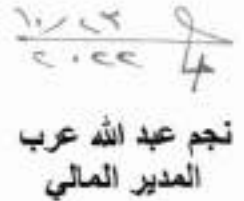 ١٠/٢٣
٢٠٢٢
نجم عبد الله عرب
المدير المالي